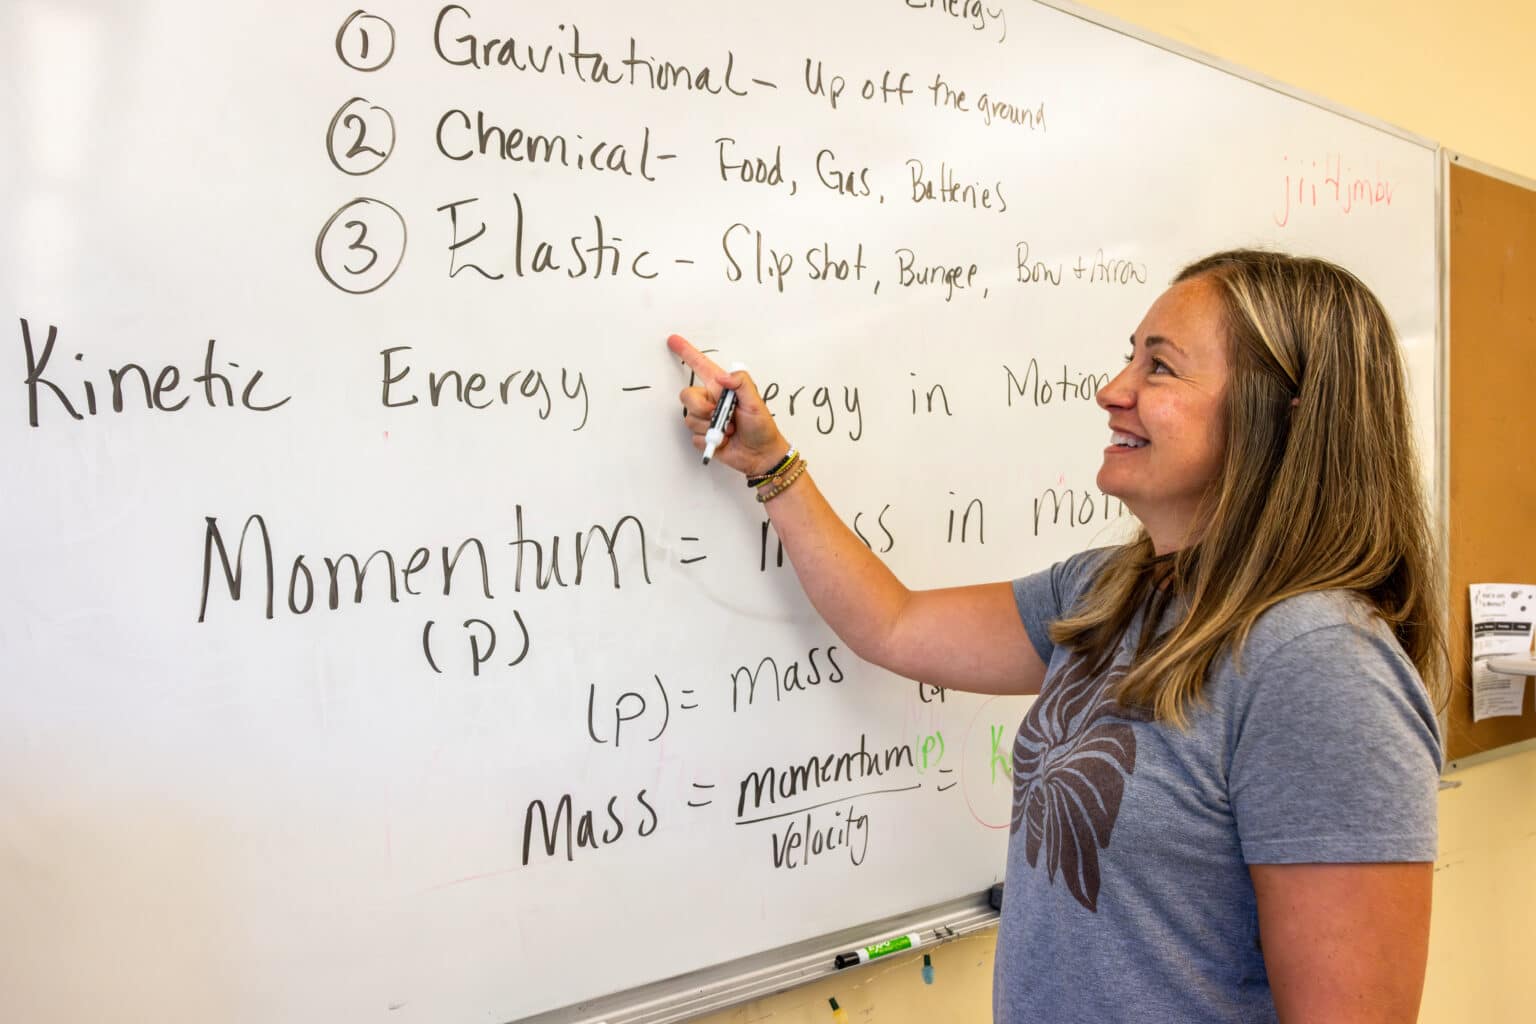 Energy
① Gravitational - Up off the ground
② Chemical - Food, Gas, Batteries
③ Elastic - Slipshot, Bungee, Bow + Arrow
jii4jmbv
Kinetic Energy - Energy in Motion
Momentum = mass in moti
(p)
(p) = mass
Mass = momentum (p) =
velocity
EXPO